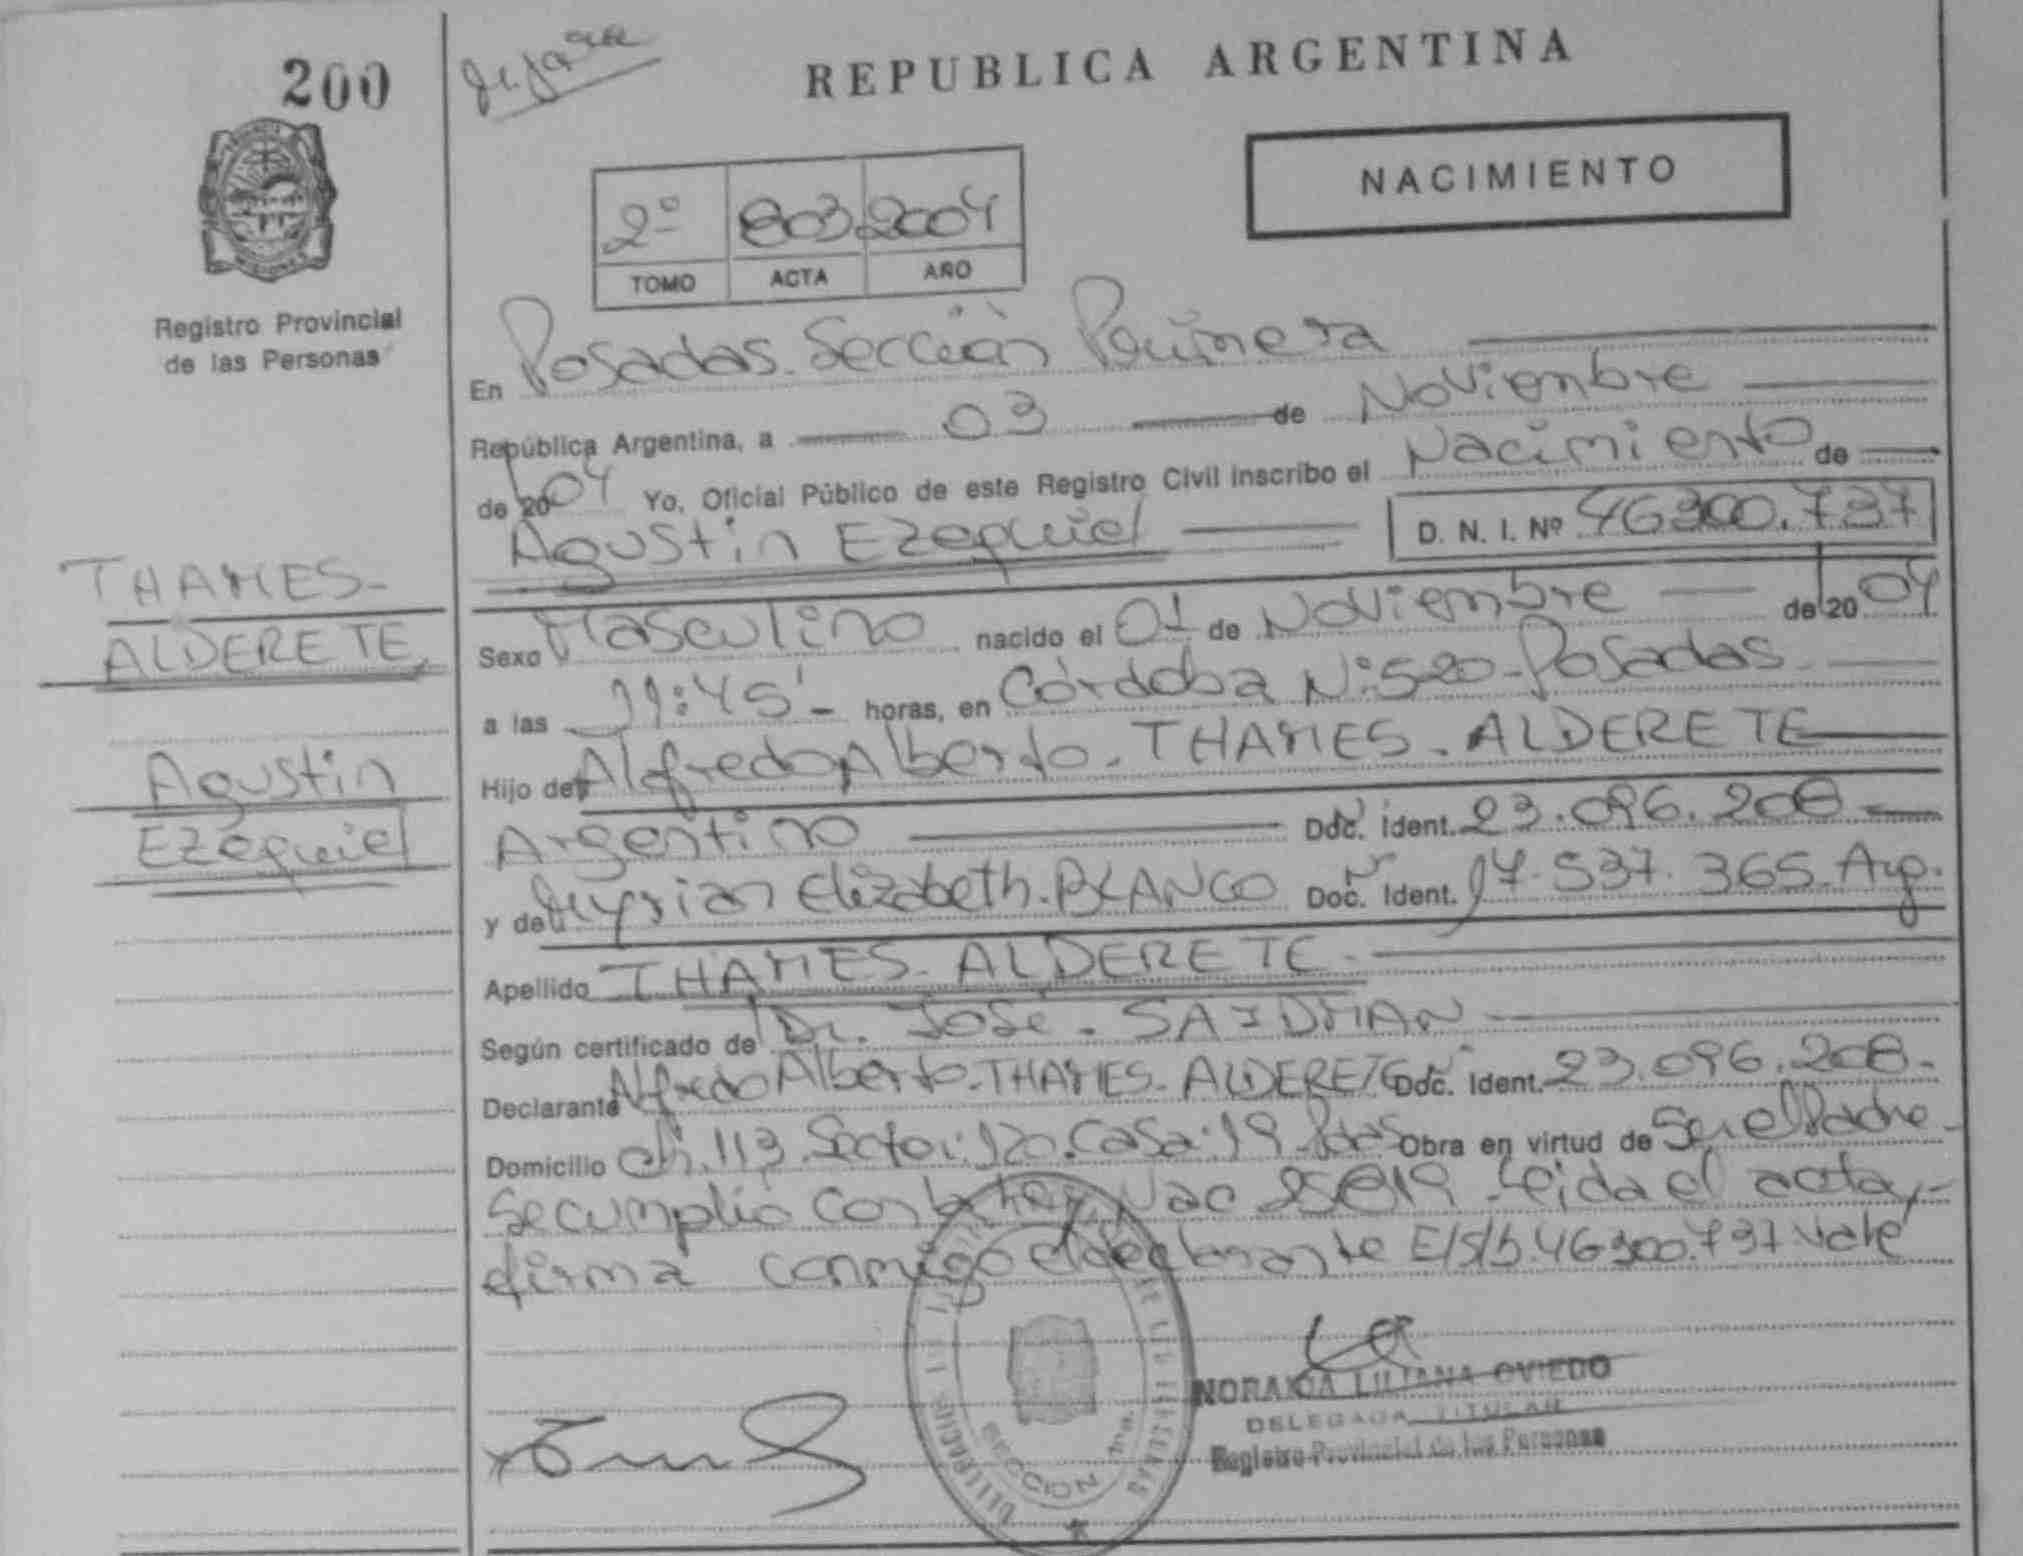 200
REPUBLICA ARGENTINA
NACIMIENTO
2º 803 2004
TOMO ACTA AÑO
Registro Provincial
de las Personas
En Posadas. Sección Primera
República Argentina, a 03 de Noviembre
de 2004 Yo, Oficial Público de este Registro Civil inscribo el Nacimiento de
Agustin Ezequiel D. N. I. Nº 46300.737
THAMES-
ALDERETE,
Agustin
Ezequiel
Sexo Masculino nacido el 01 de Noviembre de 2004
a las 11:45'- horas, en Córdoba Nº:520-Posadas
Hijo de Alfredo Alberto. THAMES. ALDERETE
Argentino Doc. Ident. 23.096.208
y de Myrian Elizabeth. BLANCO Doc. Ident. 17.537.365. Arg.
Apellido THAMES. ALDERETE.
Según certificado de Dr. José. SAIDMAN
Declarante Alfredo Alberto. THAMES. ALDERETE Doc. Ident. 23.096.208.
Domicilio Ch. 113. Sector: 120. Casa: 19. Pdas Obra en virtud de Ser el Padre-
Se cumplió con la Ley Nac 25819 Leida el acta,-
firma conmigo el declarante E/S/b. 46300.737 Vale
NORAIDA LILIANA OVIEDO
DELEGADA TITULAR
Registro Provincial de las Personas
SECCION 1ra.